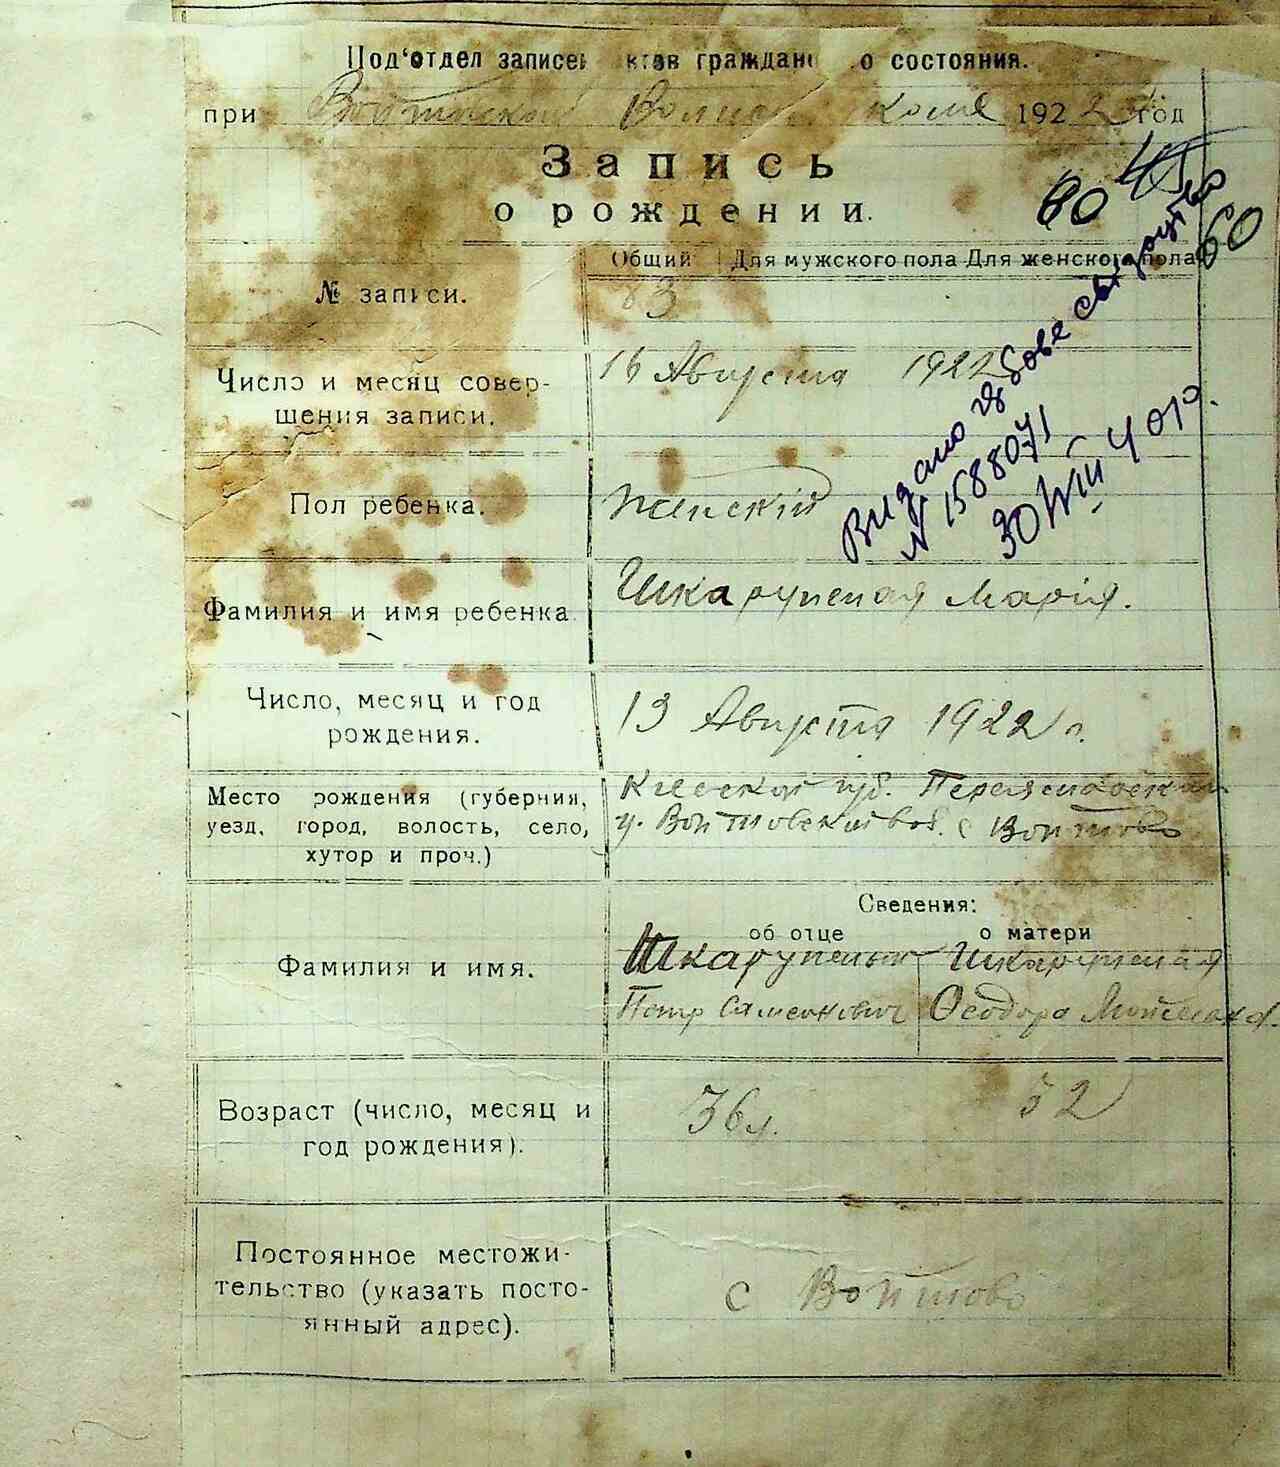 Под'отдел записей актов гражданского состояния.
при Войтовской Волисполкоме 1922 год
Запись
о рождении.
80 45
60
Общий Для мужского пола Для женского пола
№ записи. 63
Число и месяц совер-
шения записи.
16 Августа 1922
Видано
N 1588071
30
Пол ребенка. женский
Фамилия и имя ребенка Мария.
Число, месяц и год
рождения.
13 Августа 1922 г.
Место рождения (губерния,
уезд, город, волость, село,
хутор и проч.)
Киевской губ. Переяславскаго
у. Войтовской вол. с Войтово
Сведения:
об отце о матери
Фамилия и имя.
Петр Семенович Феодора
Возраст (число, месяц и
год рождения).
36 л. 32
Постоянное местожи-
тельство (указать посто-
янный адрес).
с Войтово